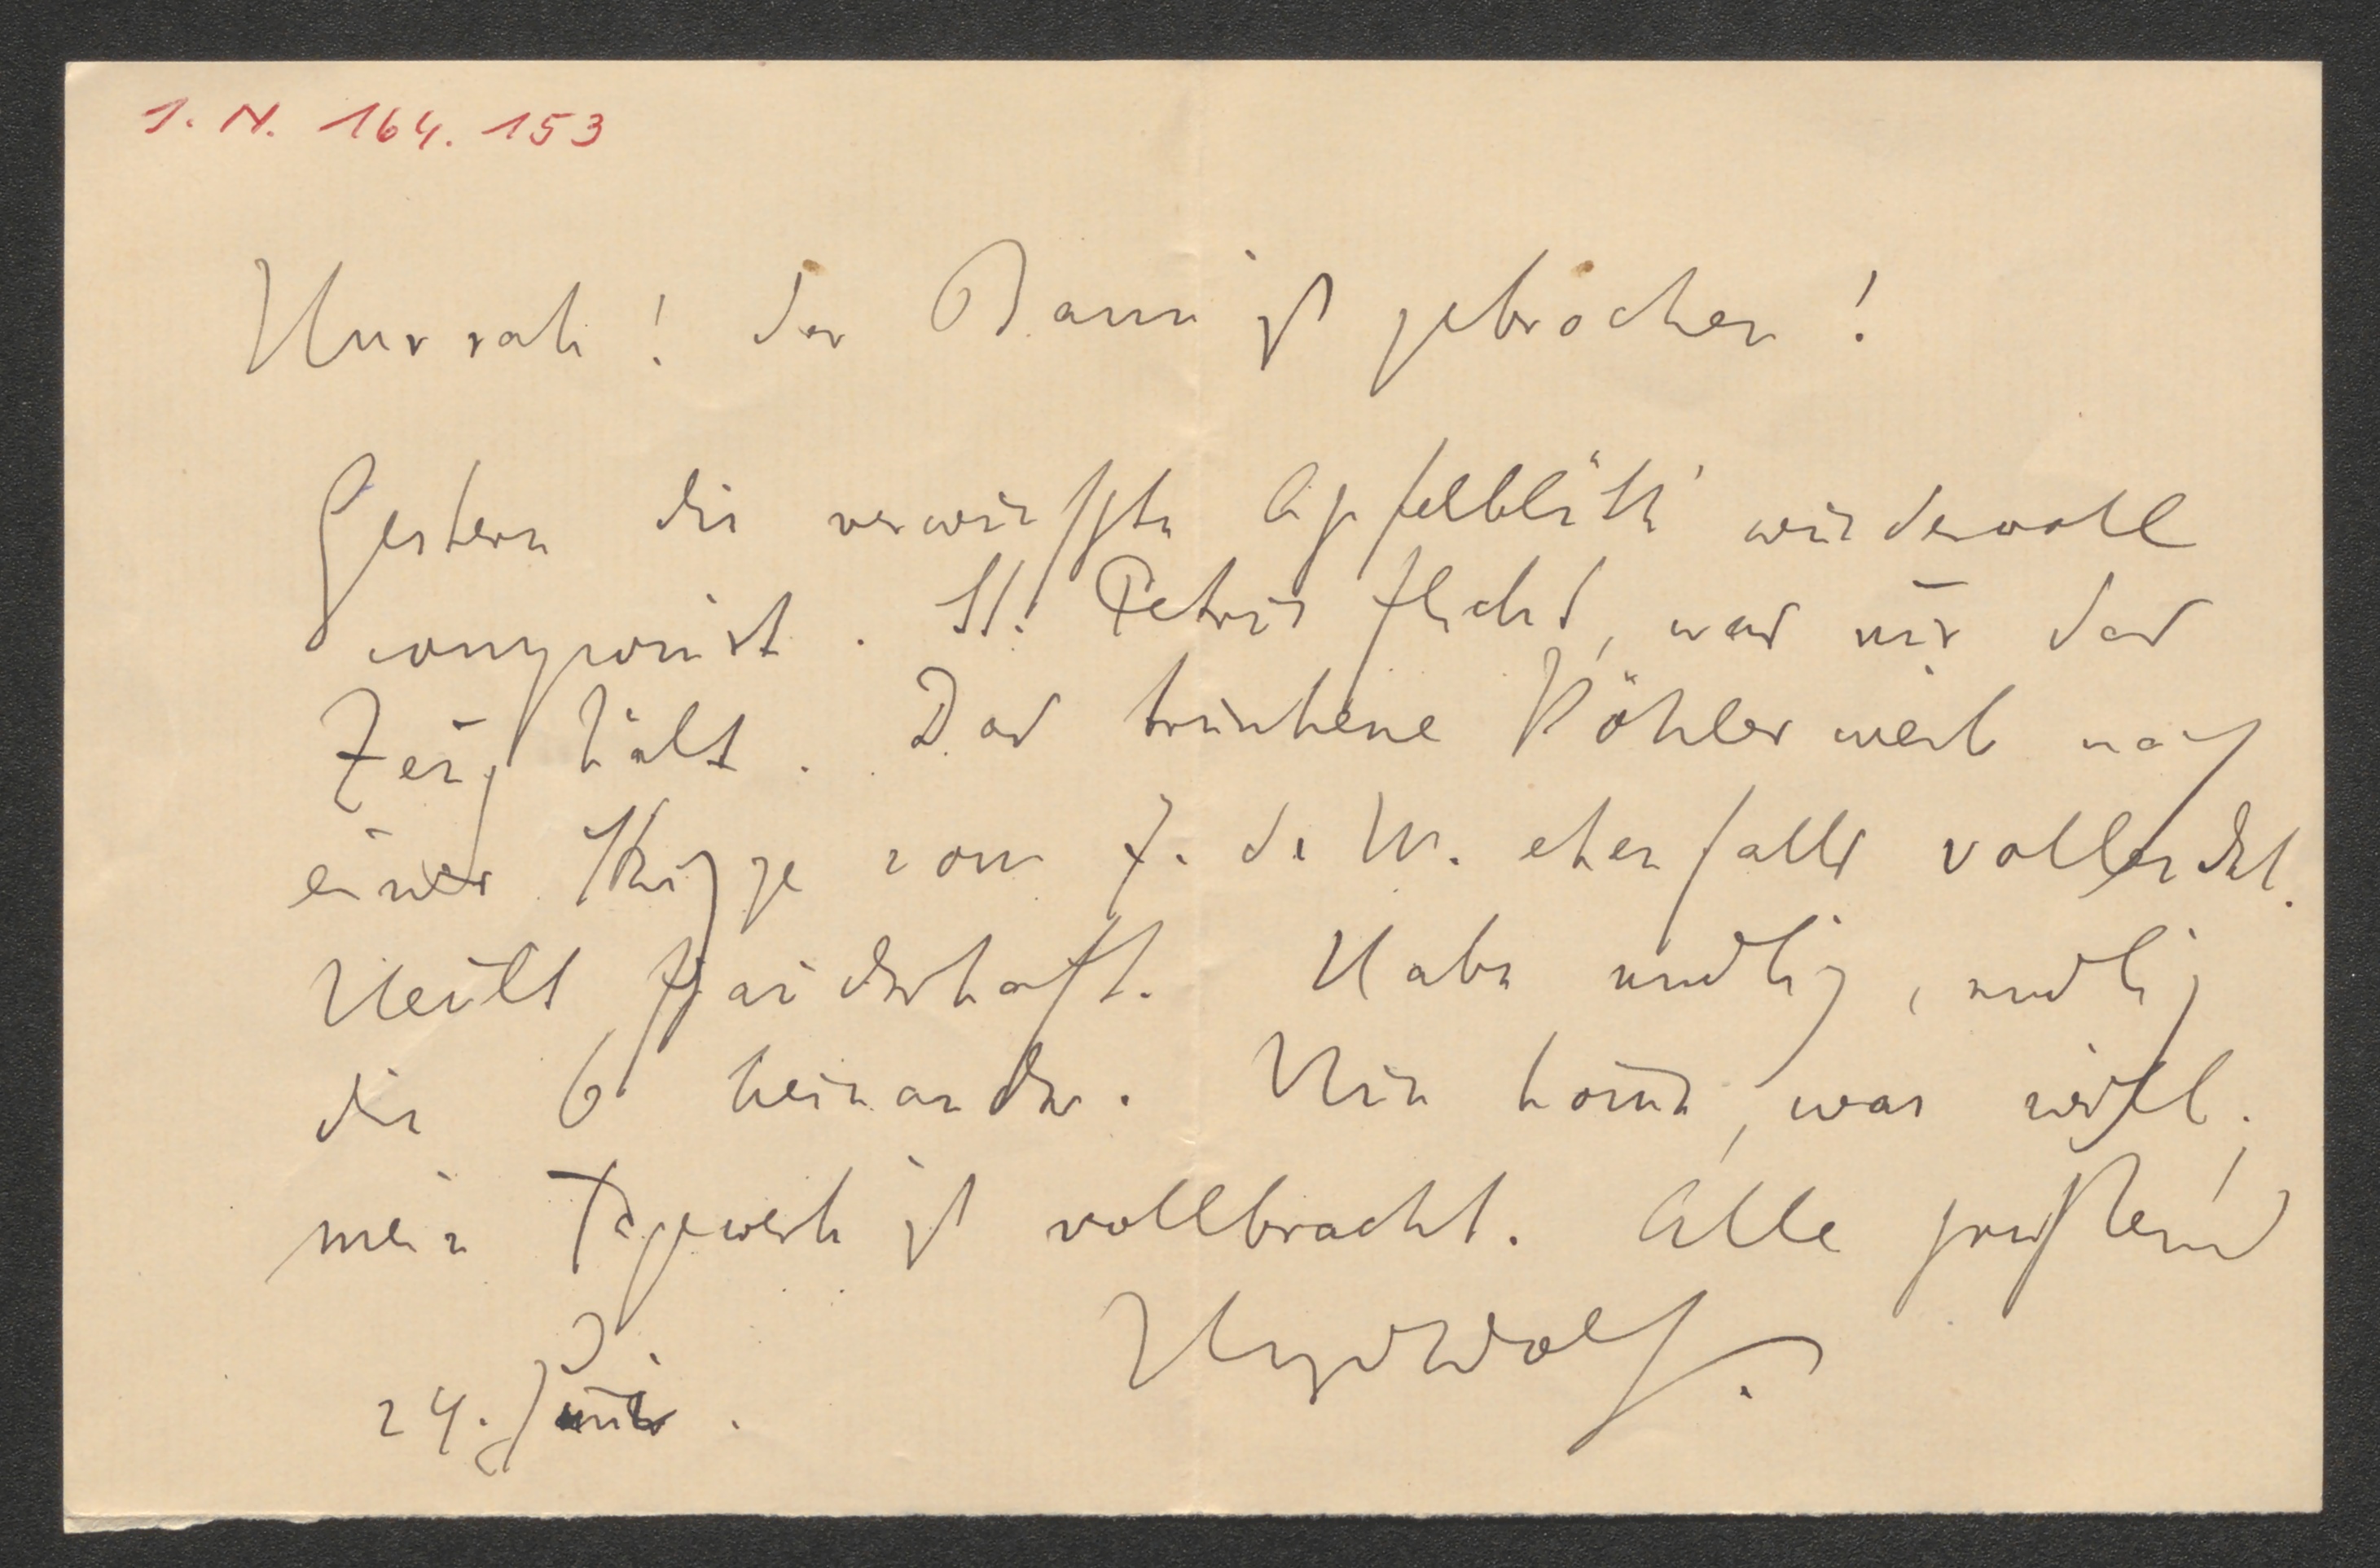 I. N. 164.153
Hurrah! der Bann ist gebrochen!
Gestern die verwünschte Apfelblüth' wundervoll
componirt. St. Petrus flucht, was nur das
Zeug hält. Das trunkene Köhlerweib nach
einer Skizze vom 7. d. M. ebenfalls vollendet.
Heult schauderhaft. Habe endlich, endlich
die 6 beinander. Nun komme, was will.
mein Tagewerk ist vollbracht. Alle grüßend
HugoWolf.
24. Juni.